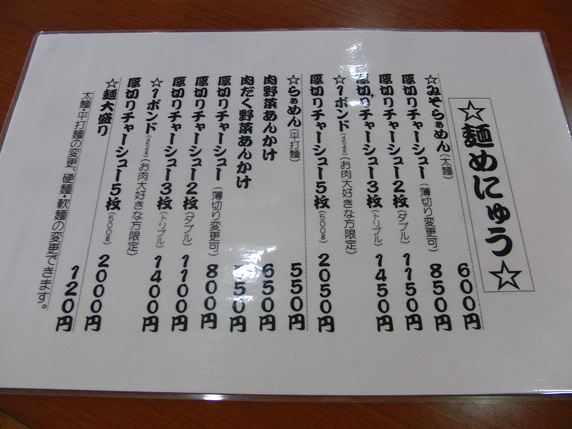 ☆麺めにゅう☆
☆みそらぁめん(太麺) 600円
厚切りチャーシュー(薄切り変更可) 850円
厚切りチャーシュー2枚(ダブル) 1150円
厚切りチャーシュー3枚(トリプル) 1450円
☆1ポンド(お肉大好きな方限定)
厚切りチャーシュー5枚(500g) 2050円
☆らぁめん(平打麺) 550円
肉野菜あんかけ 650円
肉だく野菜あんかけ 50円
厚切りチャーシュー(薄切り変更可) 800円
厚切りチャーシュー2枚(ダブル) 1100円
厚切りチャーシュー3枚(トリプル) 1400円
☆1ポンド(お肉大好きな方限定)
厚切りチャーシュー5枚(500g) 2000円
☆麺大盛り 120円
太麺・平打麺の変更、硬麺・軟麺の変更できます。